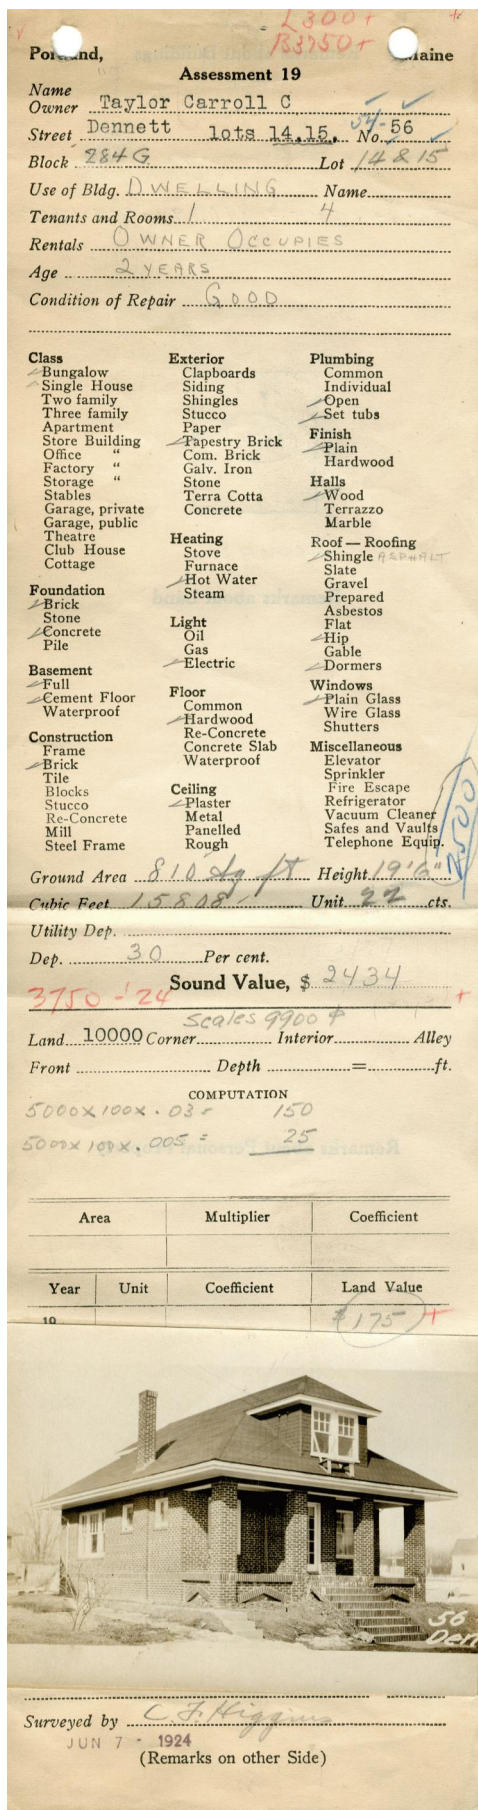 L300+
B3750+
Portland, Maine
Assessment 19
Name
Owner Taylor Carroll C
Street Dennett lots 14.15. No. 54-56
Block 284G Lot 14 & 15
Use of Bldg. DWELLING Name
Tenants and Rooms 1 4
Rentals OWNER OCCUPIES
Age 2 YEARS
Condition of Repair GOOD
Class
Bungalow
Single House
Two family
Three family
Apartment
Store Building
Office "
Factory "
Storage "
Stables
Garage, private
Garage, public
Theatre
Club House
Cottage
Foundation
Brick
Stone
Concrete
Pile
Basement
Full
Cement Floor
Waterproof
Construction
Frame
Brick
Tile
Blocks
Stucco
Re-Concrete
Mill
Steel Frame
Exterior
Clapboards
Siding
Shingles
Stucco
Paper
Tapestry Brick
Com. Brick
Galv. Iron
Stone
Terra Cotta
Concrete
Heating
Stove
Furnace
Hot Water
Steam
Light
Oil
Gas
Electric
Floor
Common
Hardwood
Re-Concrete
Concrete Slab
Waterproof
Ceiling
Plaster
Metal
Panelled
Rough
Plumbing
Common
Individual
Open
Set tubs
Finish
Plain
Hardwood
Halls
Wood
Terrazzo
Marble
Roof — Roofing
Shingle ASPHALT
Slate
Gravel
Prepared
Asbestos
Flat
Hip
Gable
Dormers
Windows
Plain Glass
Wire Glass
Shutters
Miscellaneous
Elevator
Sprinkler
Fire Escape
Refrigerator
Vacuum Cleaner
Safes and Vaults
Telephone Equip.
Ground Area 810 sq ft Height 19'6"
Cubic Feet 15808- Unit 22 cts.
Utility Dep.
Dep. 30 Per cent.
Sound Value, $ 2434
3750 - '24 +
Scales 9900 #
Land 10000 Corner Interior Alley
Front Depth = ft.
COMPUTATION
5000x100x.03= 150
5000x100x.005= 25
Area Multiplier Coefficient
Year Unit Coefficient Land Value
19 $175 +
56
Den
Surveyed by C. F. Higgins
JUN 7 - 1924
(Remarks on other Side)